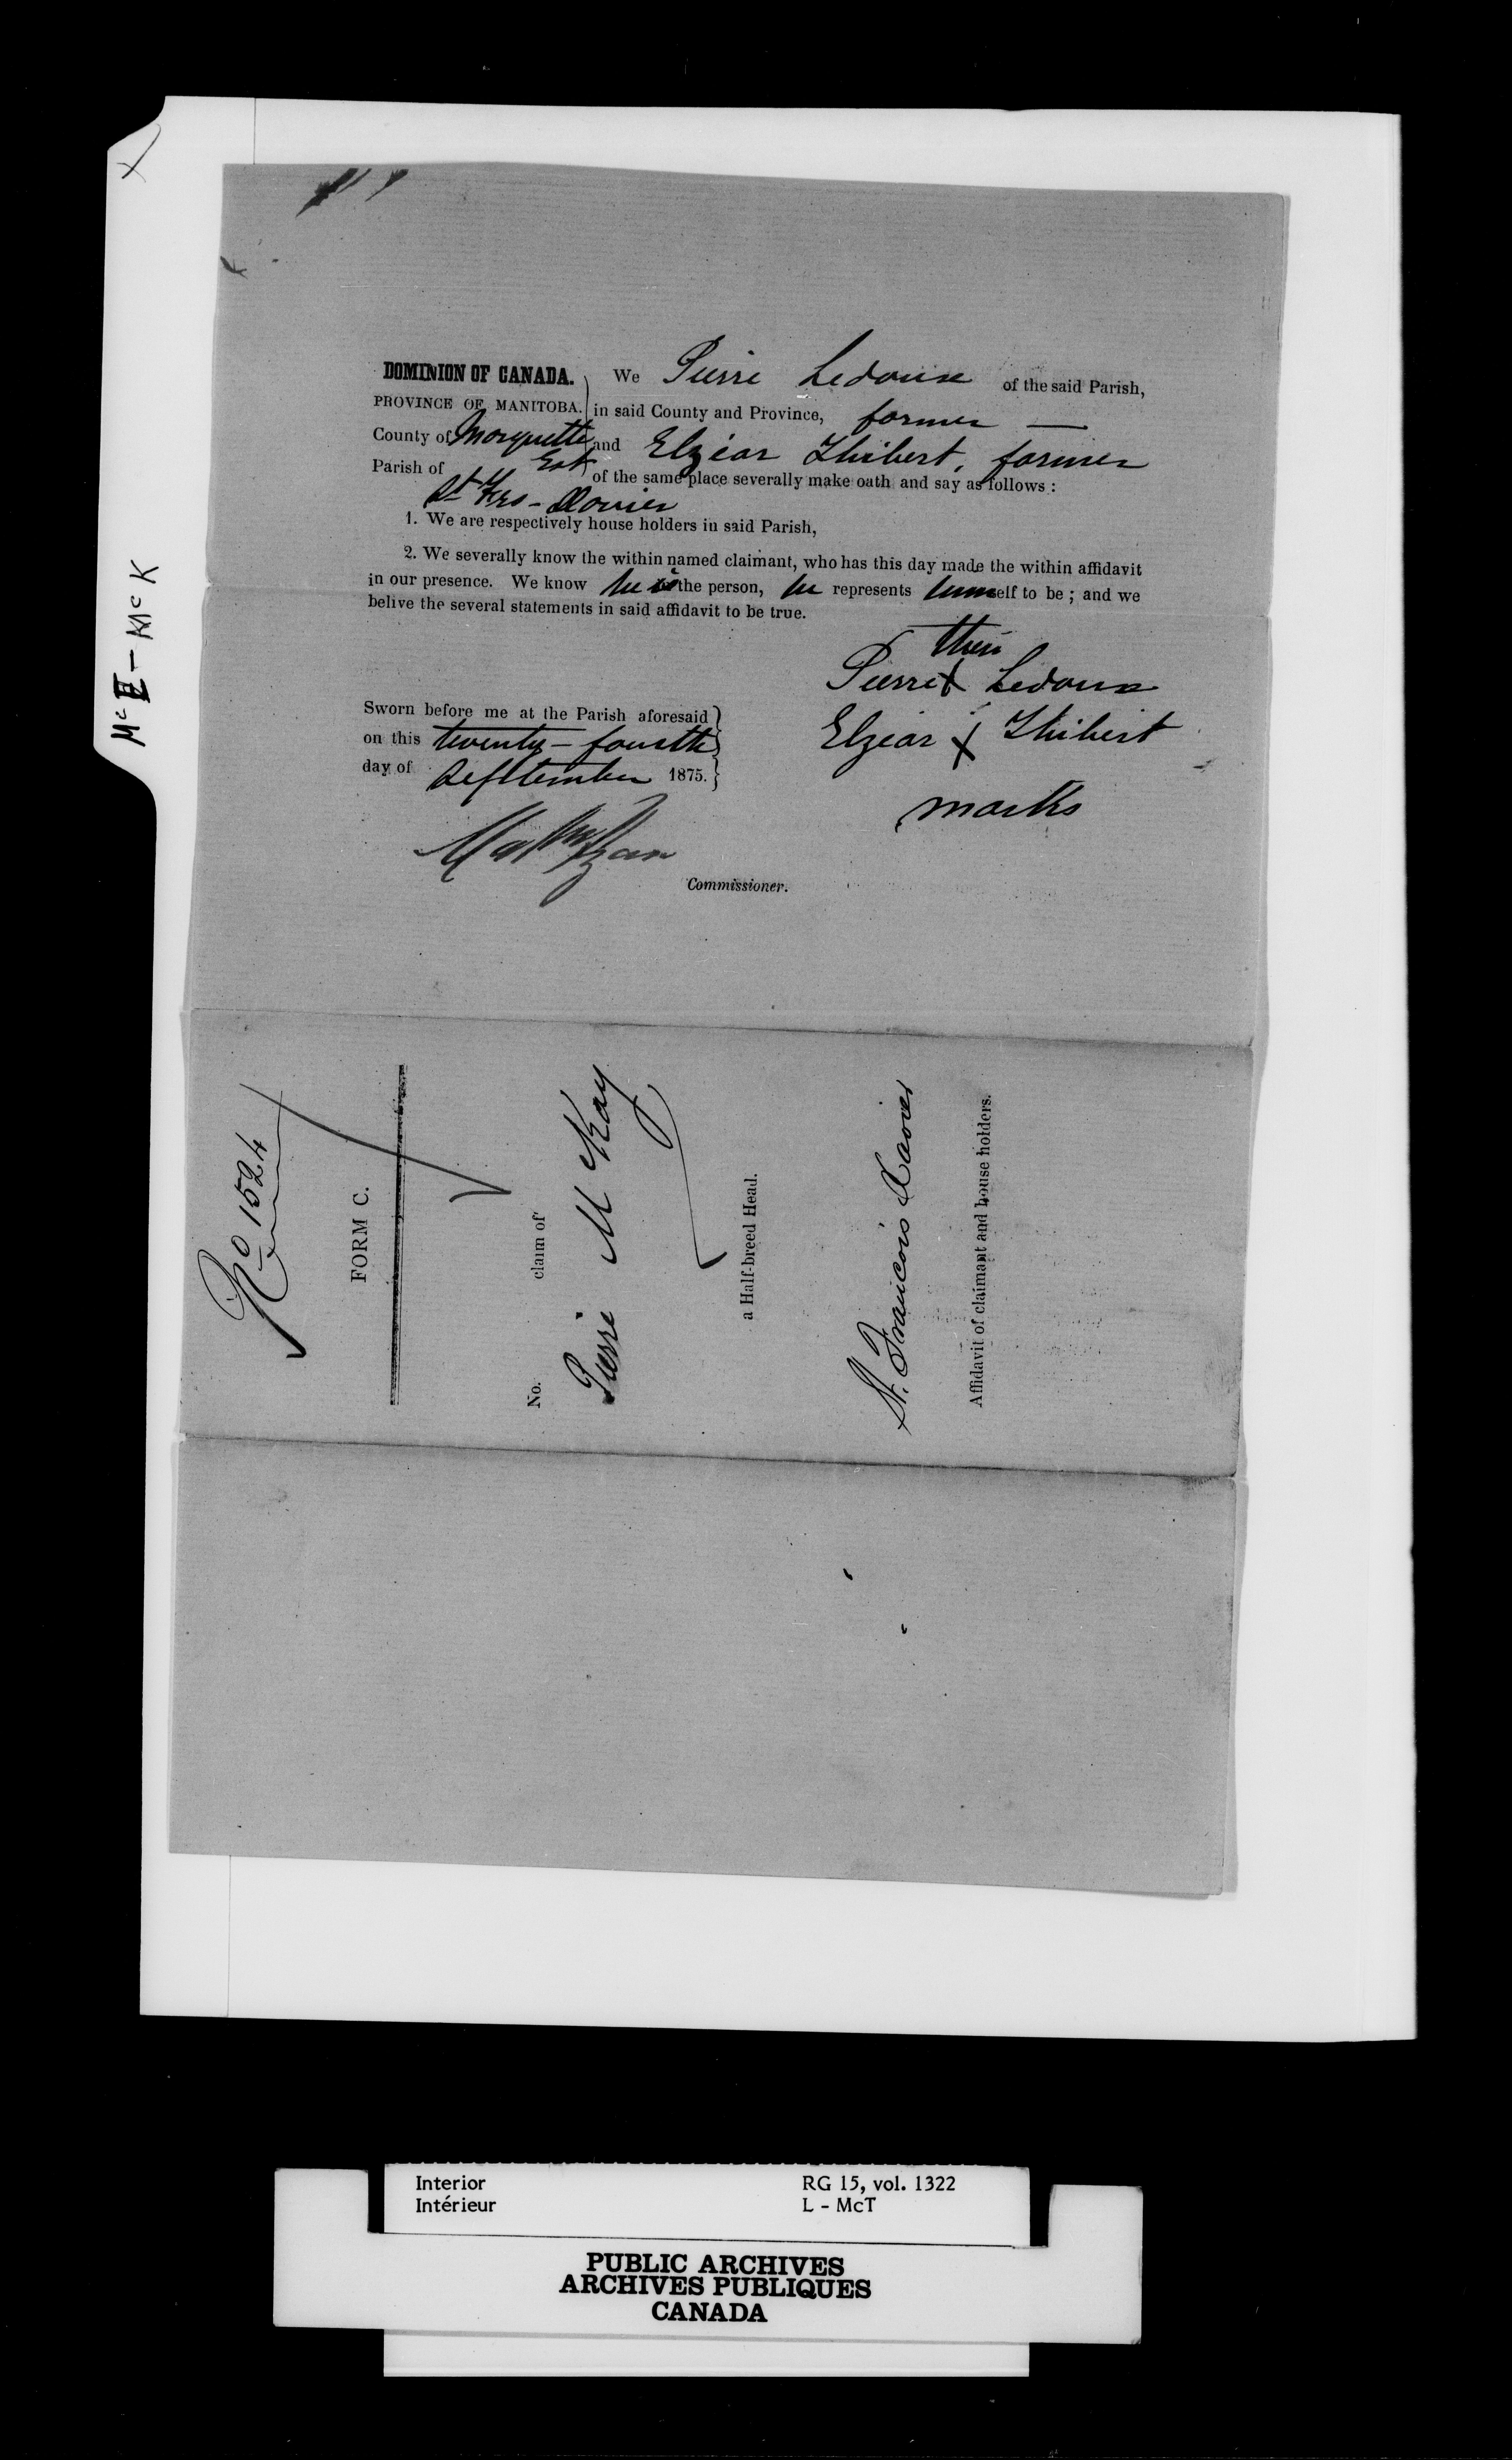 DOMINION OF CANADA.
PROVINCE OF MANITOBA.
County of Marquette
East
Parish of
St Frs-Xavier
We Pierre Ledoux of the said Parish,
in said County and Province, farmer —
and Elzéar Thibert, farmer
of the same place severally make oath and say as follows :
1. We are respectively house holders in said Parish,
2. We severally know the within named claimant, who has this day made the within affidavit
in our presence. We know he is the person, he represents himself to be ; and we
belive the several statements in said affidavit to be true.
their
Pierre X Ledoux
Elzéar X Thibert
marks
Sworn before me at the Parish aforesaid
on this twenty-fourth
day of September 1875.
Commissioner.
No 1524
FORM C.
No. claim of
Pierre McKay
a Half-breed Head.
St. François Xavier
Affidavit of claimant and house holders.
McK
Interior
Intérieur
RG 15, vol. 1322
L - McT
PUBLIC ARCHIVES
ARCHIVES PUBLIQUES
CANADA